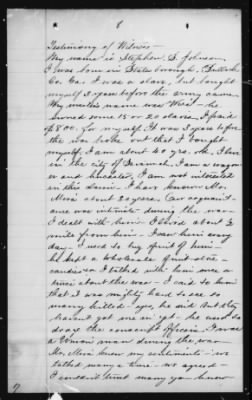 8
Testimony of Witness
My name is Stephen S. Johnson
I was born in Statesborough, Bullock
Co. Ga. I was a slave, but bought
myself 3 years before the army came.
My master's name was West - he
owned some 15 or 20 slaves, I paid
$800. for myself. It was 3 years before
the war broke out that I bought
myself. I am about 60 yrs. old. I live
in the city of Savannah. I am a wagon
and huckster, I am not interested
in this claim - I have known Mr.
about 20 years. Our acquaint-
ance was intimate during the war -
I dealt with him - I lived about
mile from him - I saw him every
day - I used to buy fruit of him -
he kept a wholesale fruit store -
candies &c I talked with him once a
time about the war - I said to him
that it was mighty hard to see so
many killed - yes, he said but they
haven't got me in yet - he used to
dodge the conscript officers. I was
a Union man during the war -
Mr. knew my sentiments - we
talked many a time - we agreed -
I couldn't trust many you know